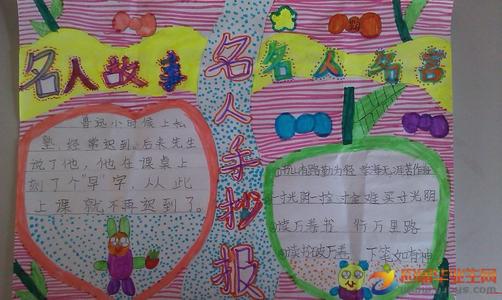 名人故事
名人手抄报
名人名言
鲁迅小时候上私
塾,经常迟到。后来先生
说了他,他在课桌上
刻了个"早"字,从此
上课就不再迟到了。
书山有路勤为径 学海无涯苦作舟
一寸光阴一寸金 寸金难买寸光阴
读万卷书 行万里路
读书破万卷 下笔如有神